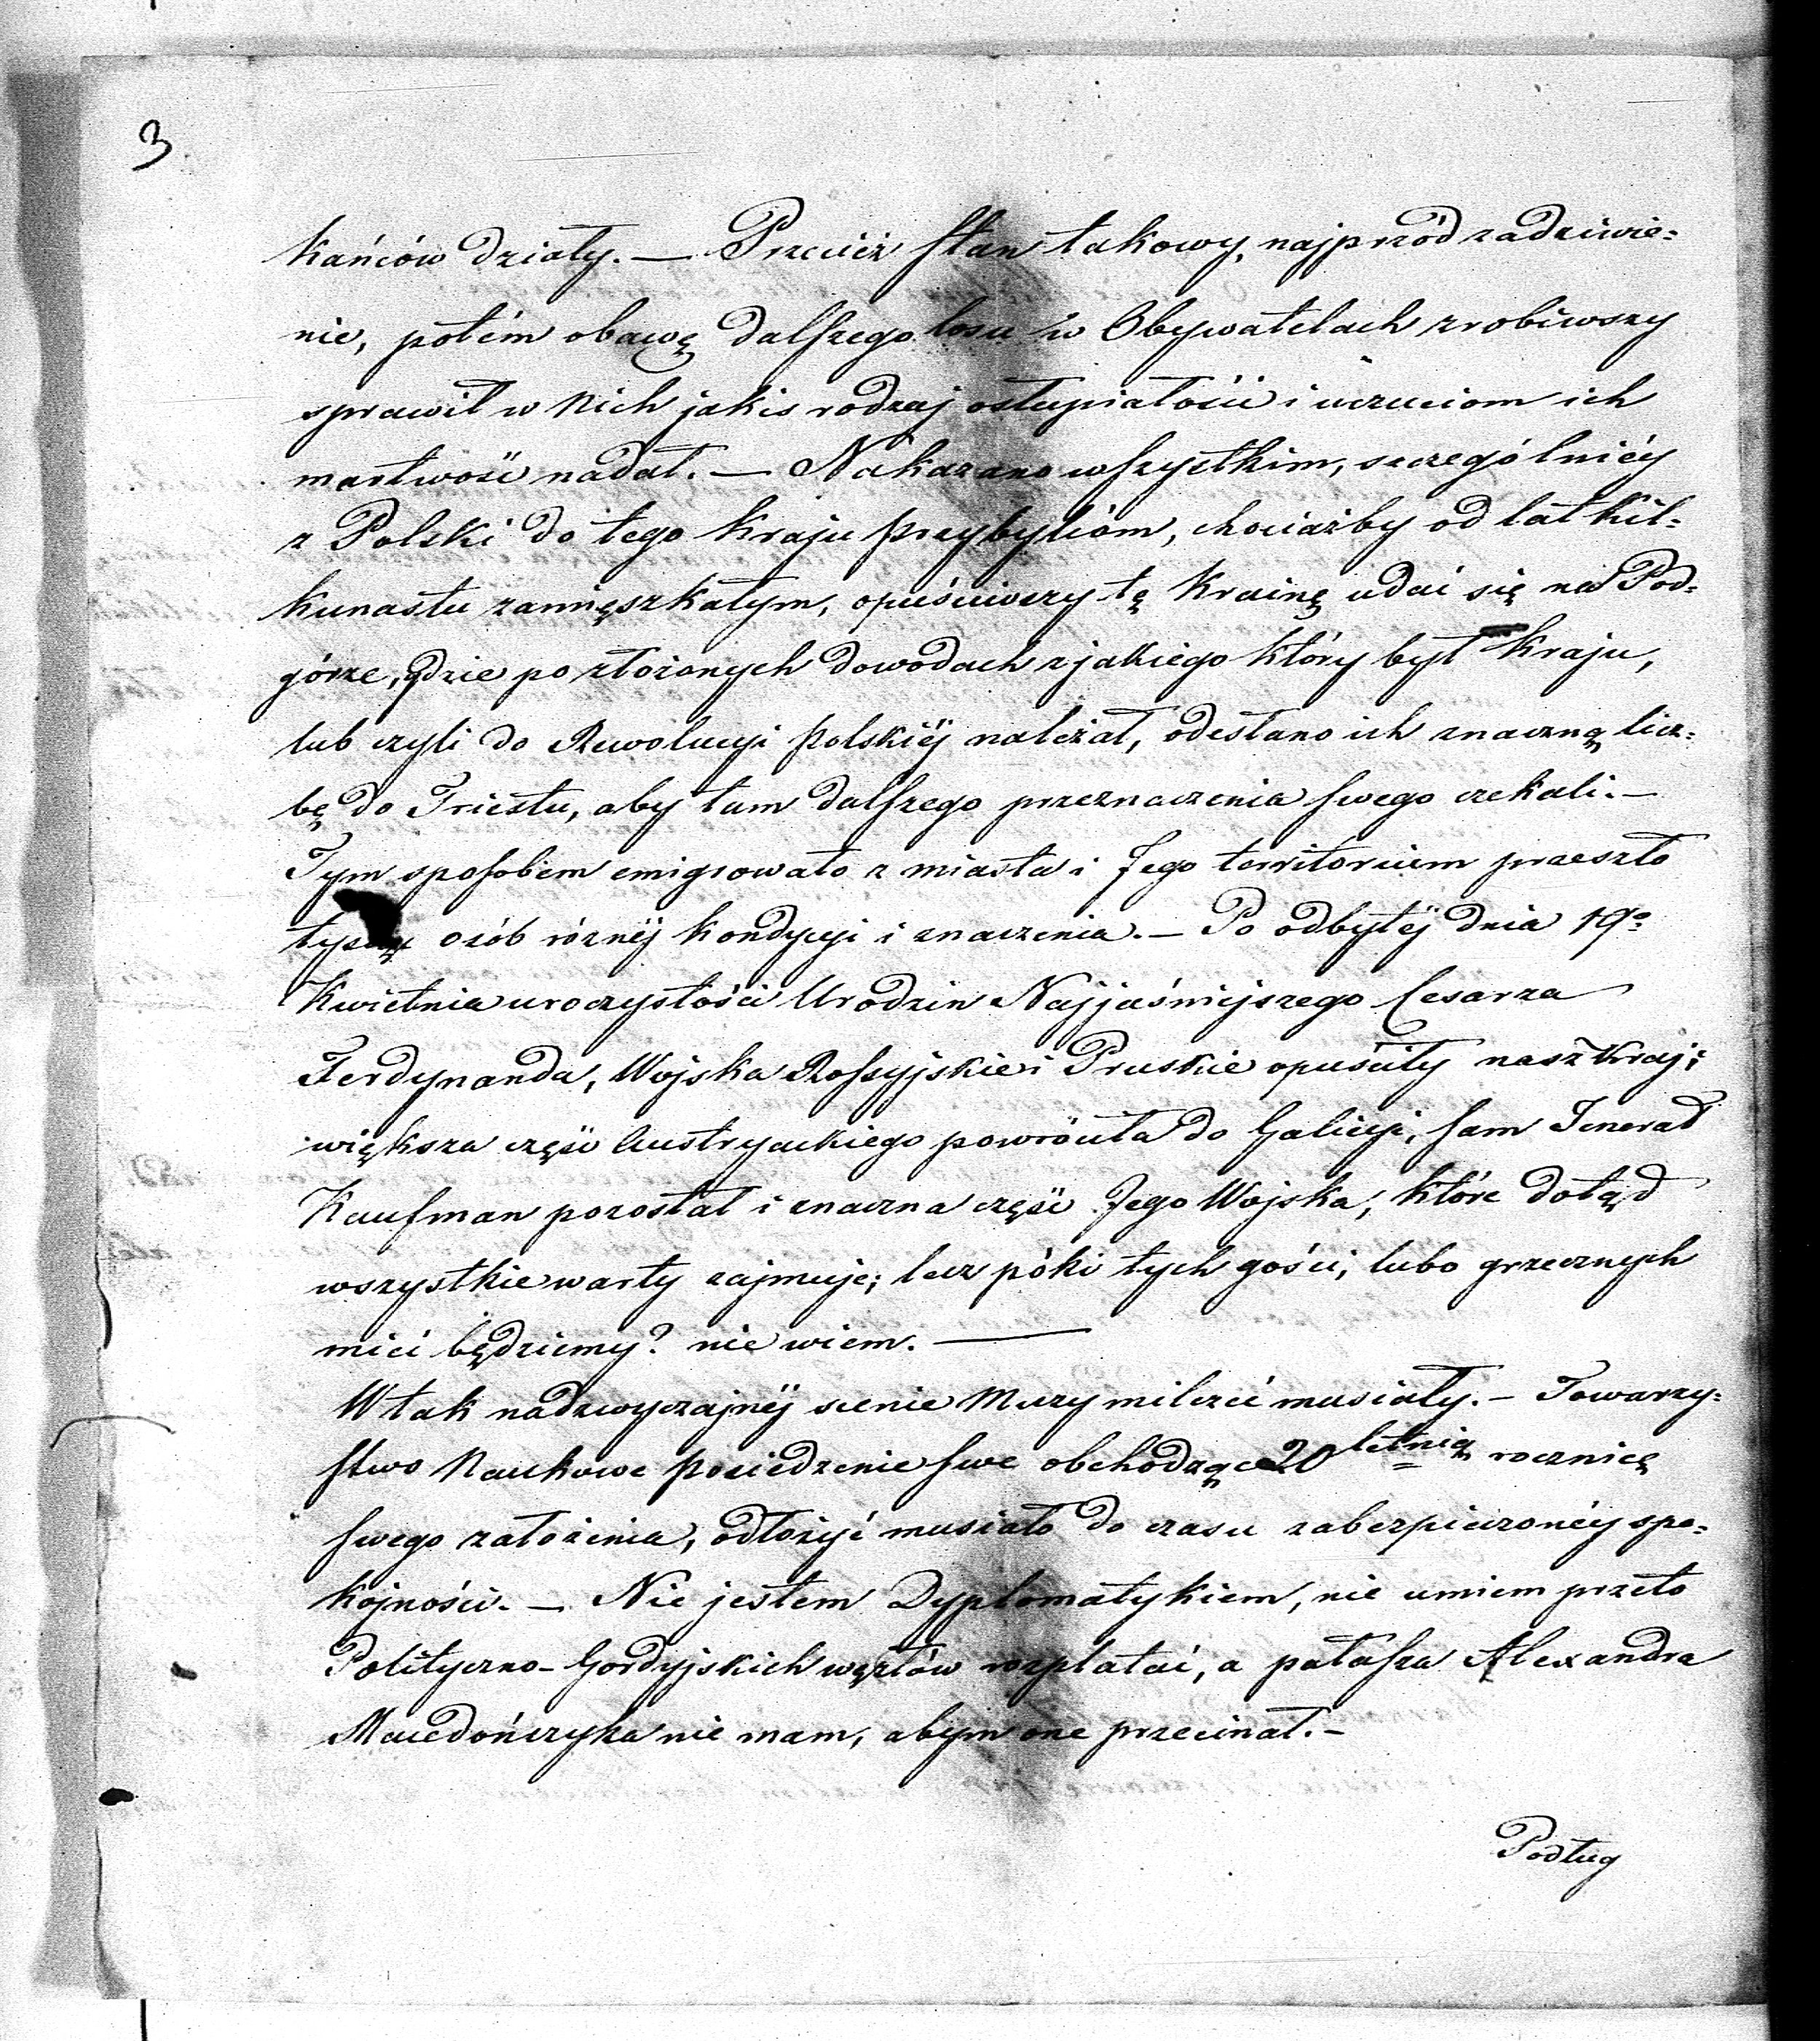 3
kańców działy. — Przecież stan takowy, najprzód zadziwie=
nie, potém obawę dalszego losu w Obywatelach zrobiwszy
sprawił w nich jakis rodzaj osłupiałości i uczuciom ich
martwość nadał. — Nakazano wszystkim, szczególniéy
z Polski do tego kraju przybyłióm, chociażby od lat kil=
kunastu zamięszkałym, opuściwszy tę krainę udać się na Pod=
górze, gdzie po złożonych dowodach z jakiego który był kraju,
lub czyli do Rewolucyi polskiéj należał, odesłano ich znaczną licz=
bę do Triestu, aby tam dalszego przeznaczenia swego czekali. —
Tym sposobem emigrowało z miasta i Jego territorium przeszło
tysiąc osób różnéj kondycyi i znaczenia. — Po odbytéj dnia 19º
Kwietnia uroczystości Urodzin Najjaśniejszego Cesarza
Ferdynanda, Wojska Rossyjskie i Pruskie opuściły nasz kraj;
większa część Austryackiego powróciła do Galicyi, sam Jenerał
Kaufman pozostał i znaczna część Jego Wojska, które dotąd
wszystkie warty zajmuje; lecz póki tych gości, lubo grzecznych
mieć będziemy? nie wiem. —
W tak nadzwyczajnéj scenie Muzy milczéć musiały. — Towarzy=
stwo Naukowe posiedzenie swe obchodzące 20 letnią rocznicę
swego założenia, odłożyć musiało do czasu zabezpieczonéy spo=
kojności. — Nie jestem Dyplomatykiem, nie umiem przeto
Polityczno-Gordyjskich węzłów rozplatać, a pałasza Alexandra
Macedończyka nie mam, abym one przecinał. —
Podług